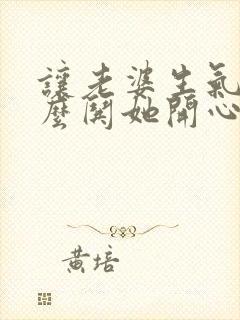 讓老婆生氣
麼關她開心
黃培